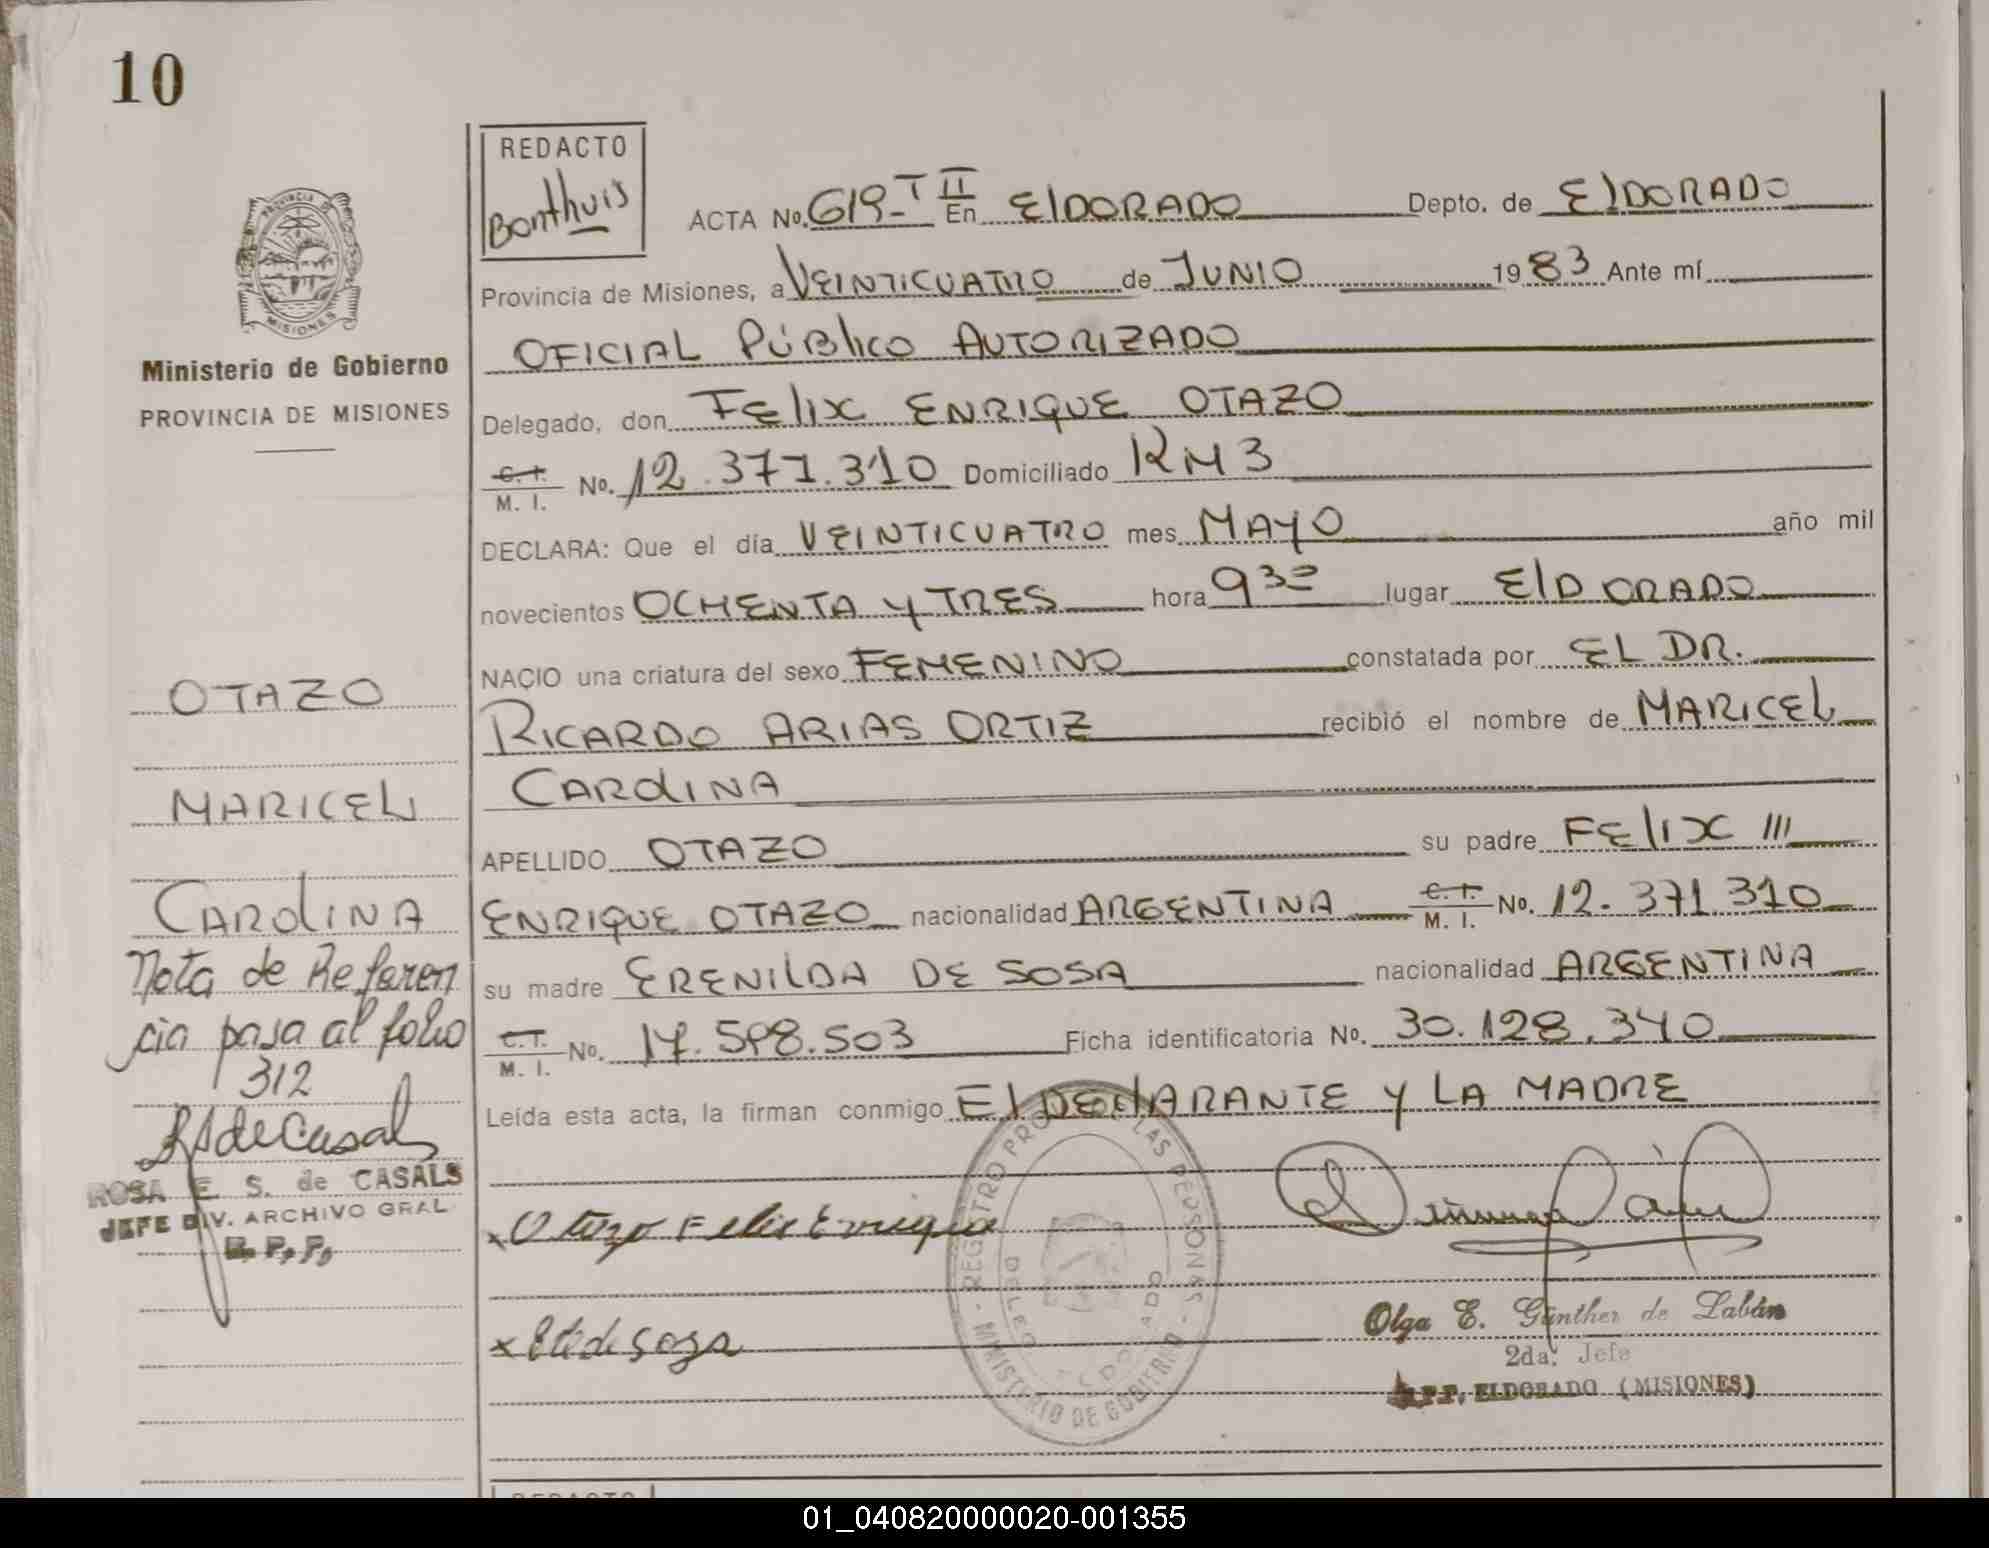 10
REDACTO
Bonthuis
ACTA No. 619-T II En ElDORADO Depto. de ElDORADO
Provincia de Misiones, a VEINTICUATRO de JUNIO 1983 Ante mí
OFICIAL PÚBlICO AUTORIZADO
Delegado, don FElIX ENRIQUE OTAZO
C. I. M. I. No. 12.371.310 Domiciliado KM 3
DECLARA: Que el día VEINTICUATRO mes MAYO año mil
novecientos OCHENTA Y TRES hora 9 30 lugar ElDORADO
NACIO una criatura del sexo FEMENINO constatada por EL DR.
RICARDO ARIAS ORTIZ recibió el nombre de MARICEL
CAROlINA
APELLIDO OTAZO su padre FElIX ///
ENRIQUE OTAZO nacionalidad ARGENTINA C. I. M. I. No. 12.371.310
su madre ERENIlDA DE SOSA nacionalidad ARGENTINA
C. I. M. I. No. 17.598.503 Ficha identificatoria No. 30.128.340
Leída esta acta, la firman conmigo El DEClARANTE Y LA MADRE
x Otazo Felix Enrique
x de Soza
REGISTRO PROV. DE LAS PERSONAS - MINISTERIO DE GOBIERNO -
ELDORADO
Olga E. Günther de Labán
2da. Jefe
R.P.P. ELDORADO (MISIONES)
PROVINCIA DE
MISIONES
Ministerio de Gobierno
PROVINCIA DE MISIONES
OTAZO
MARICEL
CAROlINA
Nota de Referen
cia pasa al folio
312
RSdeCasals
ROSA E. S. de CASALS
JEFE DIV. ARCHIVO GRAL
R. P. P.
REDACTO
01_040820000020-001355